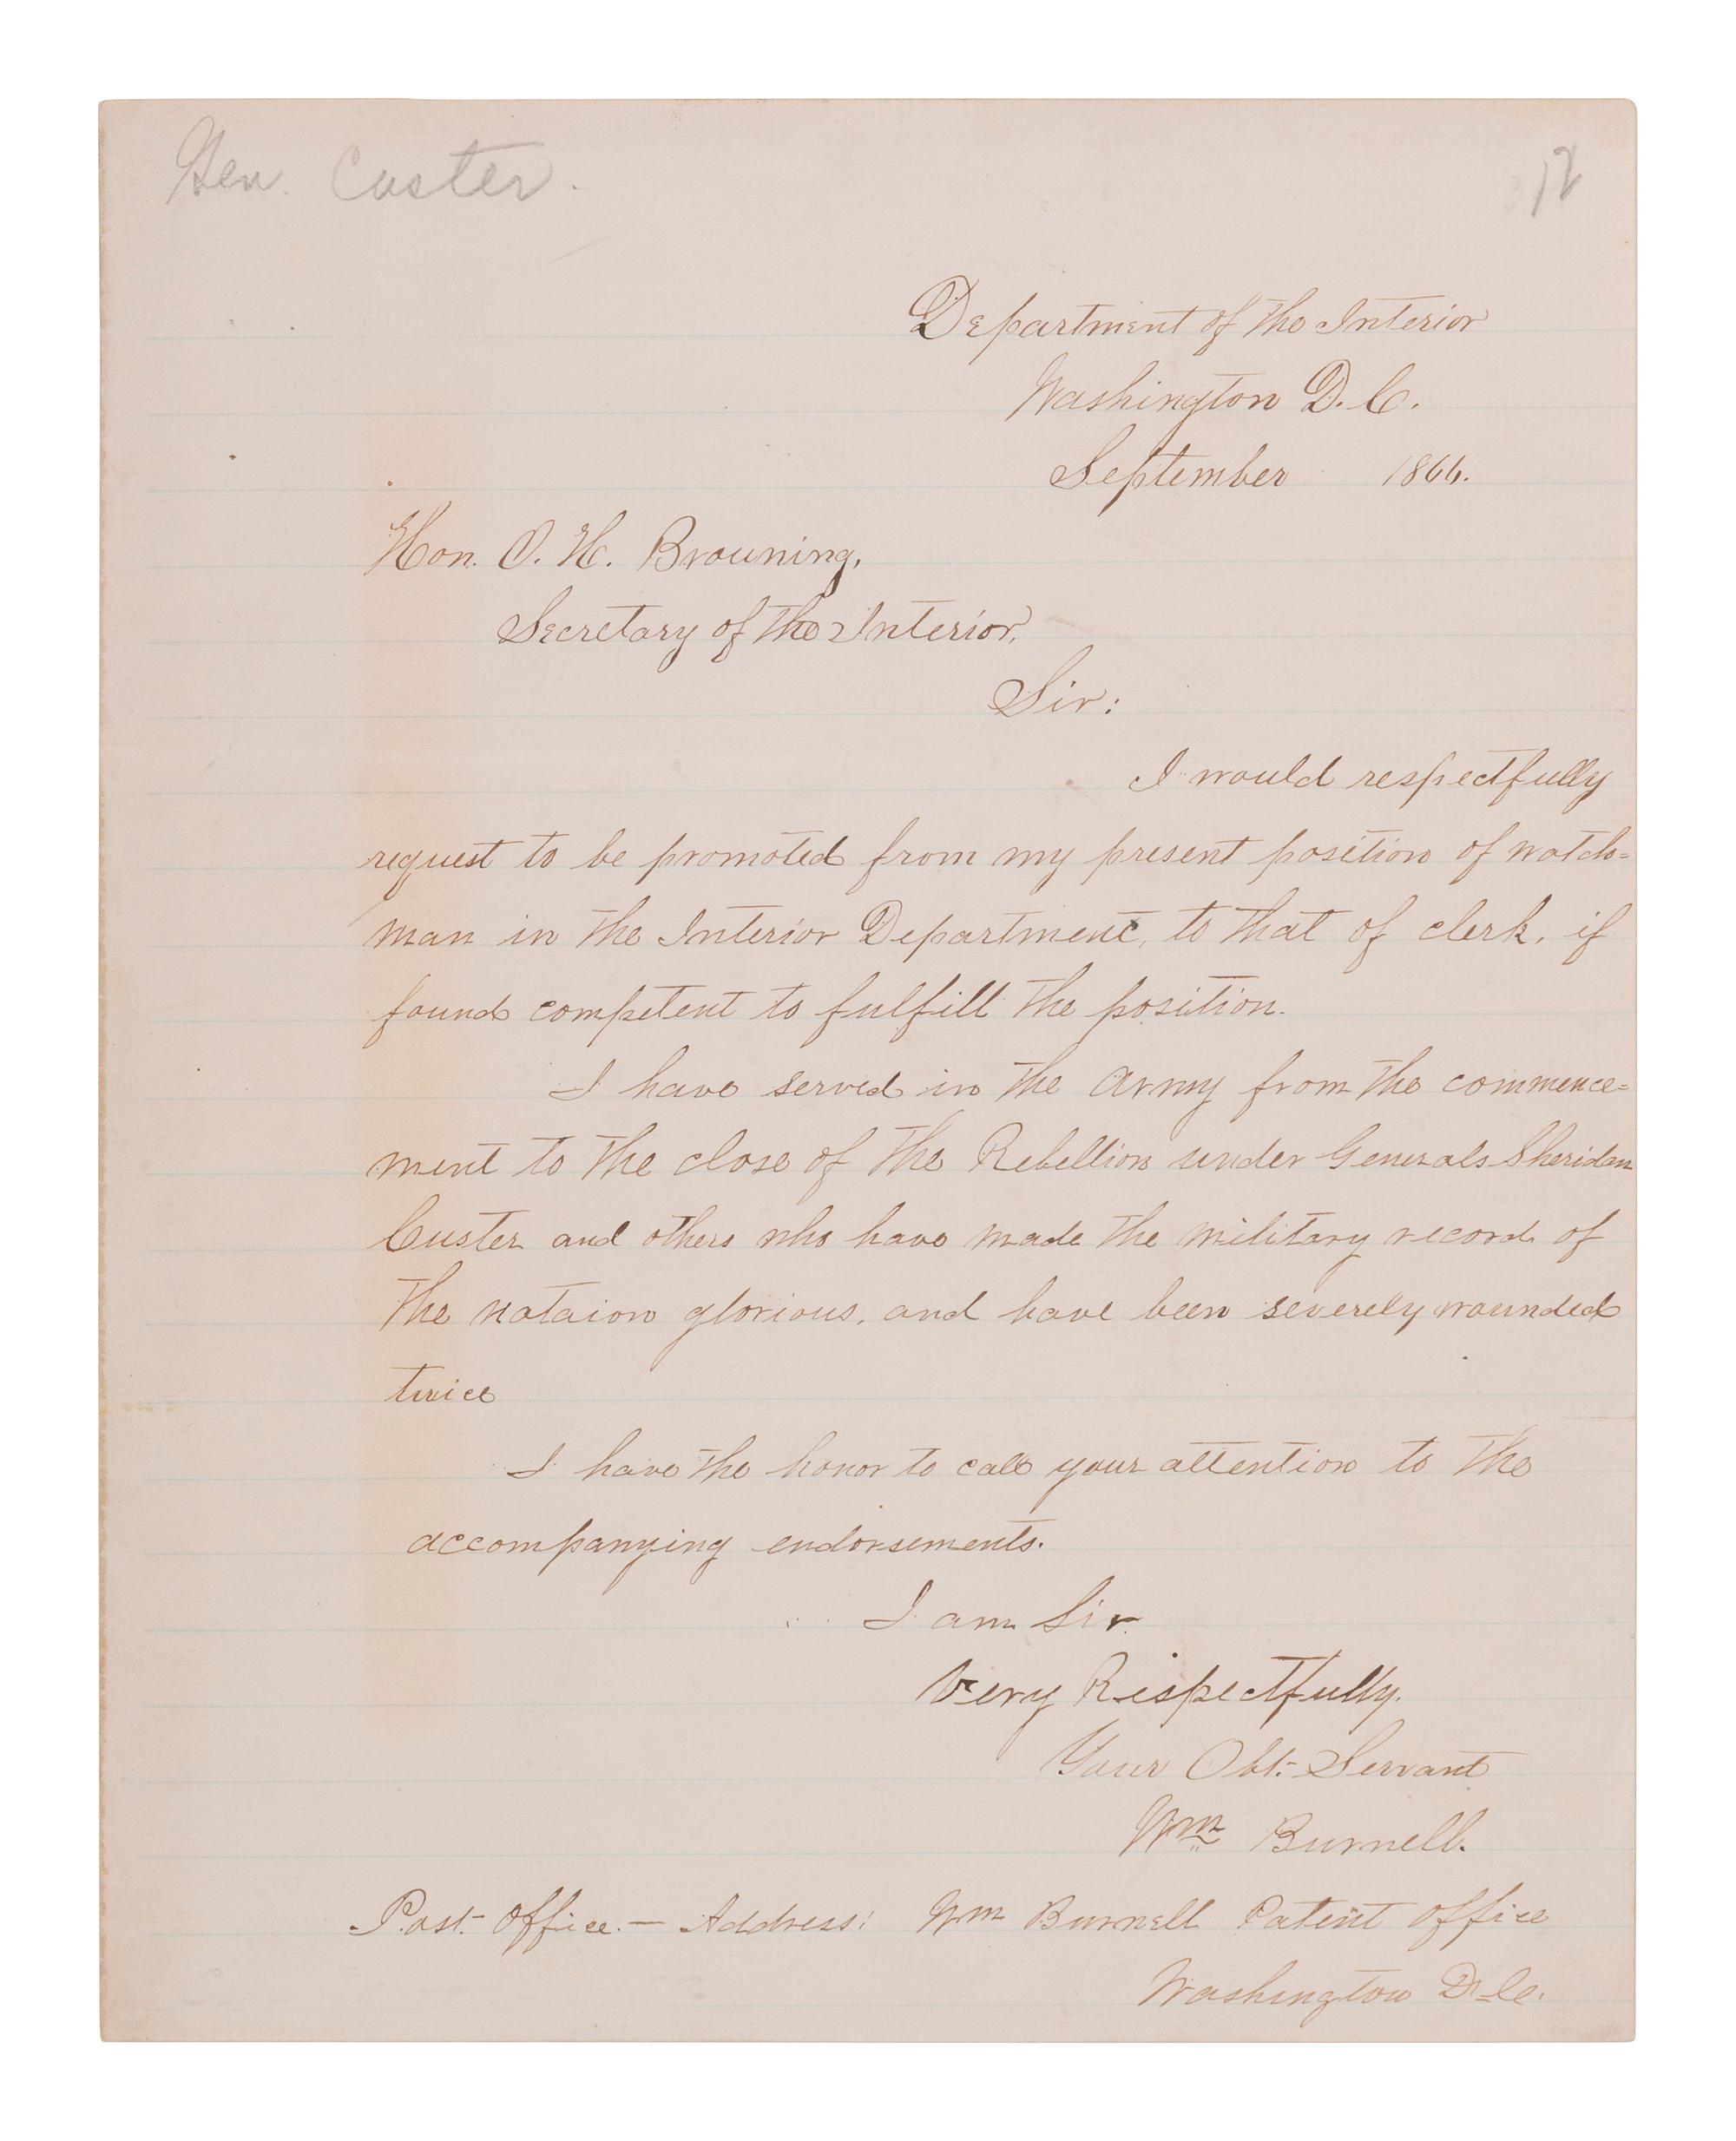 Gen. Custer.
12
Department of the Interior
Washington D. C.
September 1866.
Hon. O. H. Browning,
Secretary of the Interior,
Sir:
I would respectfully
request to be promoted from my present position of watch=
man in the Interior Department, to that of clerk, if
found competent to fulfill the position.
I have served in the Army from the commence=
ment to the close of the Rebellion under Generals Sheridan
Custer and others who have made the military record of
the nataion glorious, and have been severely wounded
twice
I have the honor to call your attention to the
accompanying endorsements.
I am Sir.
Very Respectfully.
Your Obt. Servant
Wm Burnell.
Post. Office. — Address: Wm Burnell Patent Office
Washington D. C.